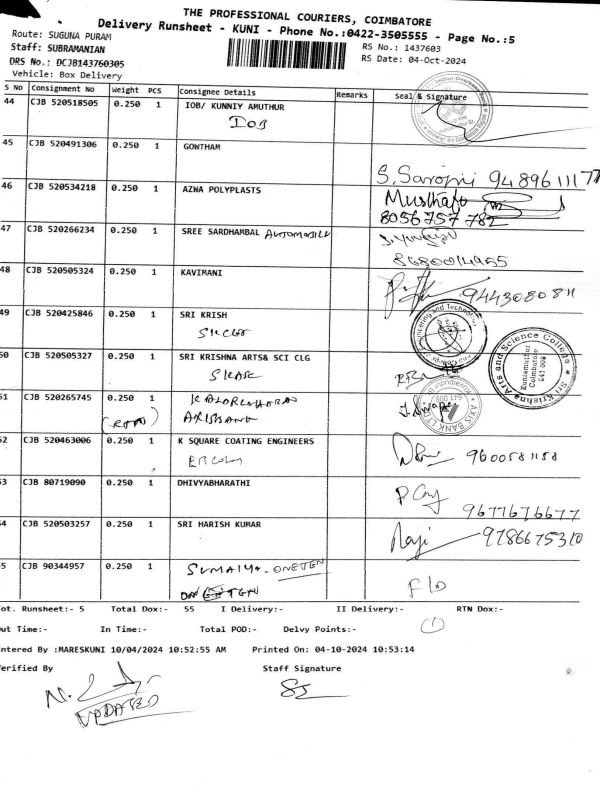 THE PROFESSIONAL COURIERS, COIMBATORE
Delivery Runsheet - KUNI - Phone No.:0422-3505555 - Page No.:5
Route: SUGUNA PURAM
RS No.: 1437603
Staff: SUBRAMANIAN
RS Date: 04-Oct-2024
DRS No.: DCJB143760305
Vehicle: Box Delivery
S No Consignment No Weight PCS Consignee Details Remarks Seal & Signature
44 CJB 520518505 0.250 1 IOB/ KUNNIY AMUTHUR
IOB
45 CJB 520491306 0.250 1 GOWTHAM
9489611177
46 CJB 520534218 0.250 1 AZNA POLYPLASTS Musthafa
8056757782
47 CJB 520266234 0.250 1 SREE SARDHAMBAL AUTOMOBILE
8680014955
48 CJB 520505324 0.250 1 KAVIMANI
9443080811
49 CJB 520425846 0.250 1 SRI KRISH
50 CJB 520505327 0.250 1 SRI KRISHNA ARTS& SCI CLG
Sri Krishna Arts and Science College
Kuniamuthur
Coimbatore
641 008
51 CJB 520265745 0.250 1
AXIS BANK LTD
52 CJB 520463006 0.250 1 K SQUARE COATING ENGINEERS
9600581158
53 CJB 80719090 0.250 1 DHIVYABHARATHI
9677676677
54 CJB 520503257 0.250 1 SRI HARISH KUMAR
Raji 9786675310
55 CJB 90344957 0.250 1 SUMAIYA - ONETEN
Tot. Runsheet:- 5 Total Dox:- 55 I Delivery:- II Delivery:- RTN Dox:-
Out Time:- In Time:- Total POD:- Delvy Points:-
(1)
Entered By :MARESKUNI 10/04/2024 10:52:55 AM Printed On: 04-10-2024 10:53:14
Verified By Staff Signature
UPDATED